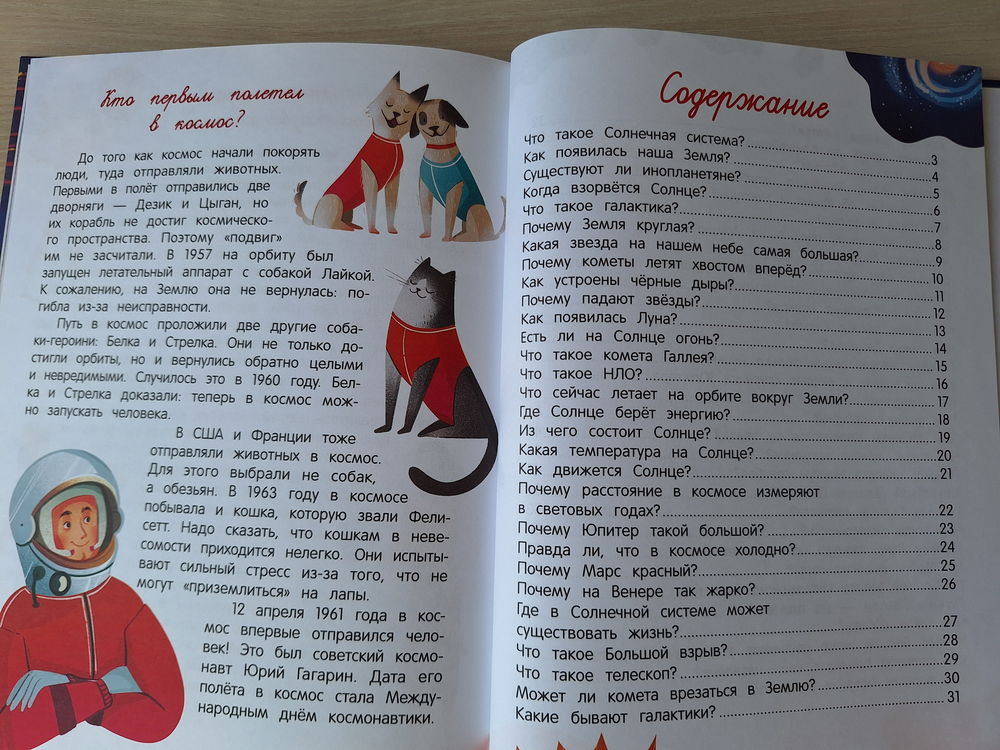 Кто первым полетел
в космос?
До того как космос начали покорять
люди, туда отправляли животных.
Первыми в полёт отправились две
дворняги — Дезик и Цыган, но
их корабль не достиг космическо-
го пространства. Поэтому «подвиг»
им не засчитали. В 1957 на орбиту был
запущен летательный аппарат с собакой Лайкой.
К сожалению, на Землю она не вернулась: по-
гибла из-за неисправности.
Путь в космос проложили две другие соба-
ки-героини: Белка и Стрелка. Они не только до-
стигли орбиты, но и вернулись обратно целыми
и невредимыми. Случилось это в 1960 году. Бел-
ка и Стрелка доказали: теперь в космос мож-
но запускать человека.
В США и Франции тоже
отправляли животных в космос.
Для этого выбрали не собак,
а обезьян. В 1963 году в космосе
побывала и кошка, которую звали Фели-
сетт. Надо сказать, что кошкам в неве-
сомости приходится нелегко. Они испыты-
вают сильный стресс из-за того, что не
могут «приземлиться» на лапы.
12 апреля 1961 года в кос-
мос впервые отправился чело-
век! Это был советский космо-
навт Юрий Гагарин. Дата его
полёта в космос стала Между-
народным днём космонавтики.
Содержание
Что такое Солнечная система? 3
Как появилась наша Земля? 4
Существуют ли инопланетяне? 5
Когда взорвётся Солнце? 6
Что такое галактика? 7
Почему Земля круглая? 8
Какая звезда на нашем небе самая большая? 9
Почему кометы летят хвостом вперёд? 10
Как устроены чёрные дыры? 11
Почему падают звёзды? 12
Как появилась Луна? 13
Есть ли на Солнце огонь? 14
Что такое комета Галлея? 15
Что такое НЛО? 16
Что сейчас летает на орбите вокруг Земли? 17
Где Солнце берёт энергию? 18
Из чего состоит Солнце? 19
Какая температура на Солнце? 20
Как движется Солнце? 21
Почему расстояние в космосе измеряют
в световых годах? 22
Почему Юпитер такой большой? 23
Правда ли, что в космосе холодно? 24
Почему Марс красный? 25
Почему на Венере так жарко? 26
Где в Солнечной системе может
существовать жизнь? 27
Что такое Большой взрыв? 28
Что такое телескоп? 29
Может ли комета врезаться в Землю? 30
Какие бывают галактики? 31